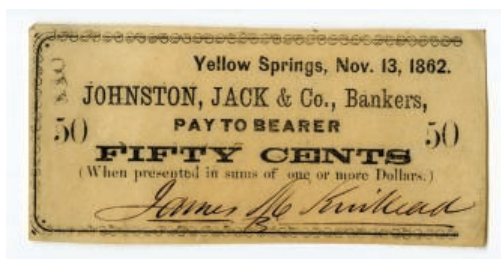 Yellow Springs, Nov. 13, 1862.
JOHNSTON, JACK & Co., Bankers,
50 PAY TO BEARER 50
FIFTY CENTS
(When presented in sums of one or more Dollars.)
James